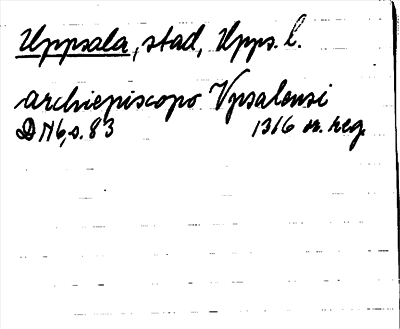 Uppsala, stad, Upps. l.
archiepiscopo Vpsalensi
DN 6, s. 83 1316 or. reg.